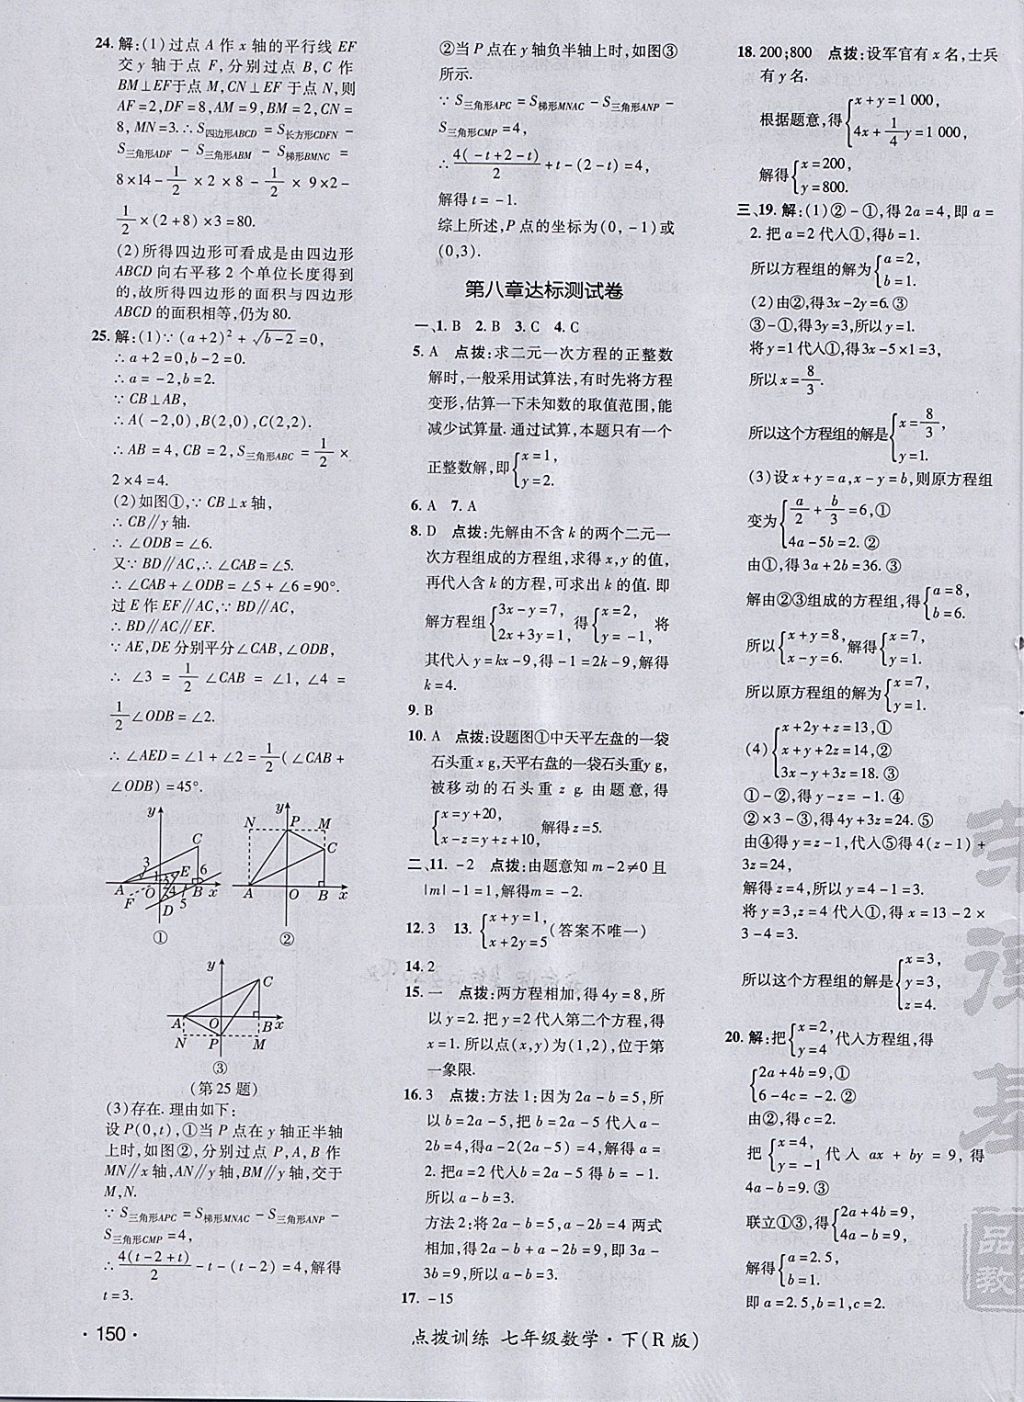 24. 解:(1)过点 A 作 x 轴的平行线 EF
交 y 轴于点 F,分别过点 B,C 作
BM⊥EF于点 M,CN⊥EF 于点 N,则
AF=2,DF=8,AM=9,BM=2,CN=
8,MN=3.∴S四边形ABCD=S长方形CDFN-
S三角形ADF-S三角形ABM-S梯形BMNC=
8×14-1/2×2×8-1/2×9×2-
1/2×(2+8)×3=80.
(2)所得四边形可看成是由四边形
ABCD向右平移 2 个单位长度得到
的,故所得四边形的面积与四边形
ABCD 的面积相等,仍为 80.
25. 解:(1)∵(a+2)²+√(b-2)=0,
∴a+2=0,b-2=0.
∴a=-2,b=2.
∵CB⊥AB,
∴A(-2,0),B(2,0),C(2,2).
∴AB=4,CB=2,S三角形ABC=1/2×
2×4=4.
(2)如图①,∵CB⊥x 轴,
∴CB∥y 轴.
∴∠ODB=∠6.
又∵BD∥AC,∴∠CAB=∠5.
∴∠CAB+∠ODB=∠5+∠6=90°.
过 E 作 EF∥AC,∵BD∥AC,
∴BD∥AC∥EF.
∵AE,DE 分别平分∠CAB,∠ODB,
∴∠3=1/2∠CAB=∠1,∠4=
1/2∠ODB=∠2.
∴∠AED=∠1+∠2=1/2(∠CAB+
∠ODB)=45°.
y
C
3
E
6
1
2
A
O
4
B
x
F
D
5
①
y
N
P
M
C
A
O
B
x
②
y
C
A
O
B
x
N
P
M
③
(第 25 题)
(3)存在.理由如下:
设 P(0,t),①当 P 点在 y 轴正半轴
上时,如图②,分别过点 P,A,B 作
MN∥x 轴,AN∥y 轴,BM∥y 轴,交于
M,N.
∵S三角形APC=S梯形MNAC-S三角形ANP-
S三角形CMP=4,
∴4(t-2+t)/2-t-(t-2)=4,解得
t=3.
· 150 ·
②当 P 点在 y 轴负半轴上时,如图③
所示.
∵S三角形APC=S梯形MNAC-S三角形ANP-
S三角形CMP=4,
∴4(-t+2-t)/2+t-(2-t)=4,
解得 t=-1.
综上所述,P 点的坐标为(0,-1)或
(0,3).
第八章达标测试卷
一、1. B 2. B 3. C 4. C
5. A 点拨:求二元一次方程的正整数
解时,一般采用试算法,有时先将方程
变形,估算一下未知数的取值范围,能
减少试算量.通过试算,本题只有一个
正整数解,即{x=1,
y=2.
6. A 7. A
8. D 点拨:先解由不含 k 的两个二元一
次方程组成的方程组,求得 x,y 的值,
再代人含 k 的方程,可求出 k 的值.即
解方程组{3x-y=7, 得{x=2, 将
2x+3y=1, y=-1,
其代人 y=kx-9,得-1=2k-9,解得
k=4.
9. B
10. A 点拨:设题图①中天平左盘的一袋
石头重 x g,天平右盘的一袋石头重 y g,
被移动的石头重 z g.由题意,得
{x=y+20,
x-z=y+z+10, 解得z=5.
二、11. -2 点拨:由题意知 m-2≠0 且
|m|-1=1,解得m=-2.
12. 3 13. {x+y=1,
x+2y=5 (答案不唯一)
14. 2
15. 一 点拨:两方程相加,得 4y=8,所
以 y=2.把 y=2 代人第二个方程,得
x=1.所以点(x,y)为(1,2),位于第
一象限.
16. 3 点拨:方法 1:因为 2a-b=5,所
以 b=2a-5,把 b=2a-5 代人 a-
2b=4,得 a-2(2a-5)=4,解得 a=
2,把 a=2代人b=2a-5 得 b=-1.
所以 a-b=3.
方法 2:将 2a-b=5,a-2b=4 两式
相加,得2a-b+a-2b=9,即 3a-
3b=9,所以 a-b=3.
17. -15
点拨训练 七年级数学·下(R 版)
18. 200;800 点拨:设军官有 x 名,士兵
有 y 名.
根据题意,得{x+y=1 000,
4x+1/4y=1 000,
解得{x=200,
y=800.
三、19. 解:(1)②-①,得 2a=4,即 a=
2.把 a=2 代人①,得b=1.
所以方程组的解为{a=2,
b=1.
(2)由②,得3x-2y=6.③
③-①,得3y=3,所以y=1.
将 y=1 代人①,得 3x-5×1=3,
所以 x=8/3.
所以这个方程组的解是{x=8/3,
y=1.
(3)设 x+y=a,x-y=b,则原方程组
变为{a/2+b/3=6,①
4a-5b=2.②
由①,得3a+2b=36.③
解由②③组成的方程组,得{a=8,
b=6.
所以{x+y=8, 解得{x=7,
x-y=6. y=1.
所以原方程组的解为{x=7,
y=1.
(4){x+2y+z=13,①
x+y+2z=14,②
3x-y+3z=18.③
①-②,得 y-z=-1.④
②×3-③,得 4y+3z=24.⑤
由④得 y=z-1,代人⑤得 4(z-1)+
3z=24,
解得 z=4,所以 y=4-1=3.
将 y=3,z=4 代人①,得 x=13-2×
3-4=3.
所以这个方程组的解是{x=3,
y=3,
z=4.
20. 解:把{x=2, 代人方程组,得
y=4
{2a+4b=9,①
6-4c=-2.②
由②,得 c=2.
把{x=4, 代人 ax+by=9,得
y=-1
4a-b=9.③
联立①③,得{2a+4b=9,
4a-b=9,
解得{a=2.5,
b=1.
即 a=2.5,b=1,c=2.
品
教